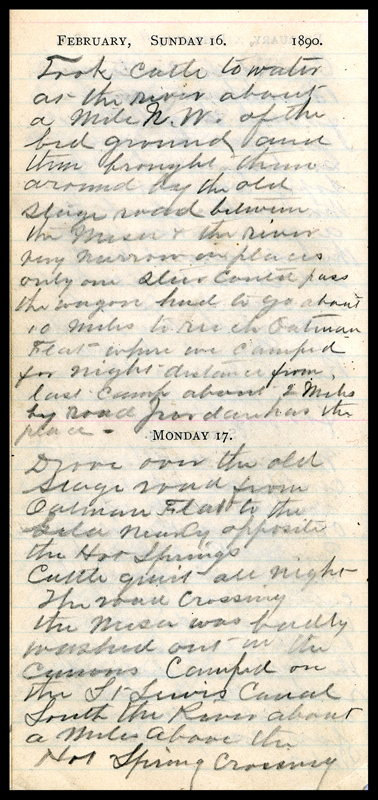 FEBRUARY, SUNDAY 16. 1890.
Took cattle to water
at the river about
a mile N. W. of the
bed ground and
then brought them
around by the old
stage road between
the Mesa & the river
very narrow in places
only one steer could pass
the wagon had to go about
10 miles to reach Oatman
Flat where we camped
for night distance from
last camp about 2 Miles
by road Jourdan has the
place -
MONDAY 17.
Drove over the old
Stage road from
Oatman Flat to the
Gila nearly opposite
the Hot Springs
Cattle quiet all night
The road crossing
the Mesa was badly
washed out in the
Camped on
the St Lewis Canal
South the River about
a Mile above the
Hot Spring Crossing